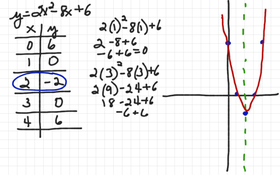 y=2x²-8x+6
x y
0 6
1 0
2 -2
3 0
4 6
2(1)²-8(1)+6
2-8+6
-6+6=0
2(3)²-8(3)+6
2(9)-24+6
18-24+6
-6+6